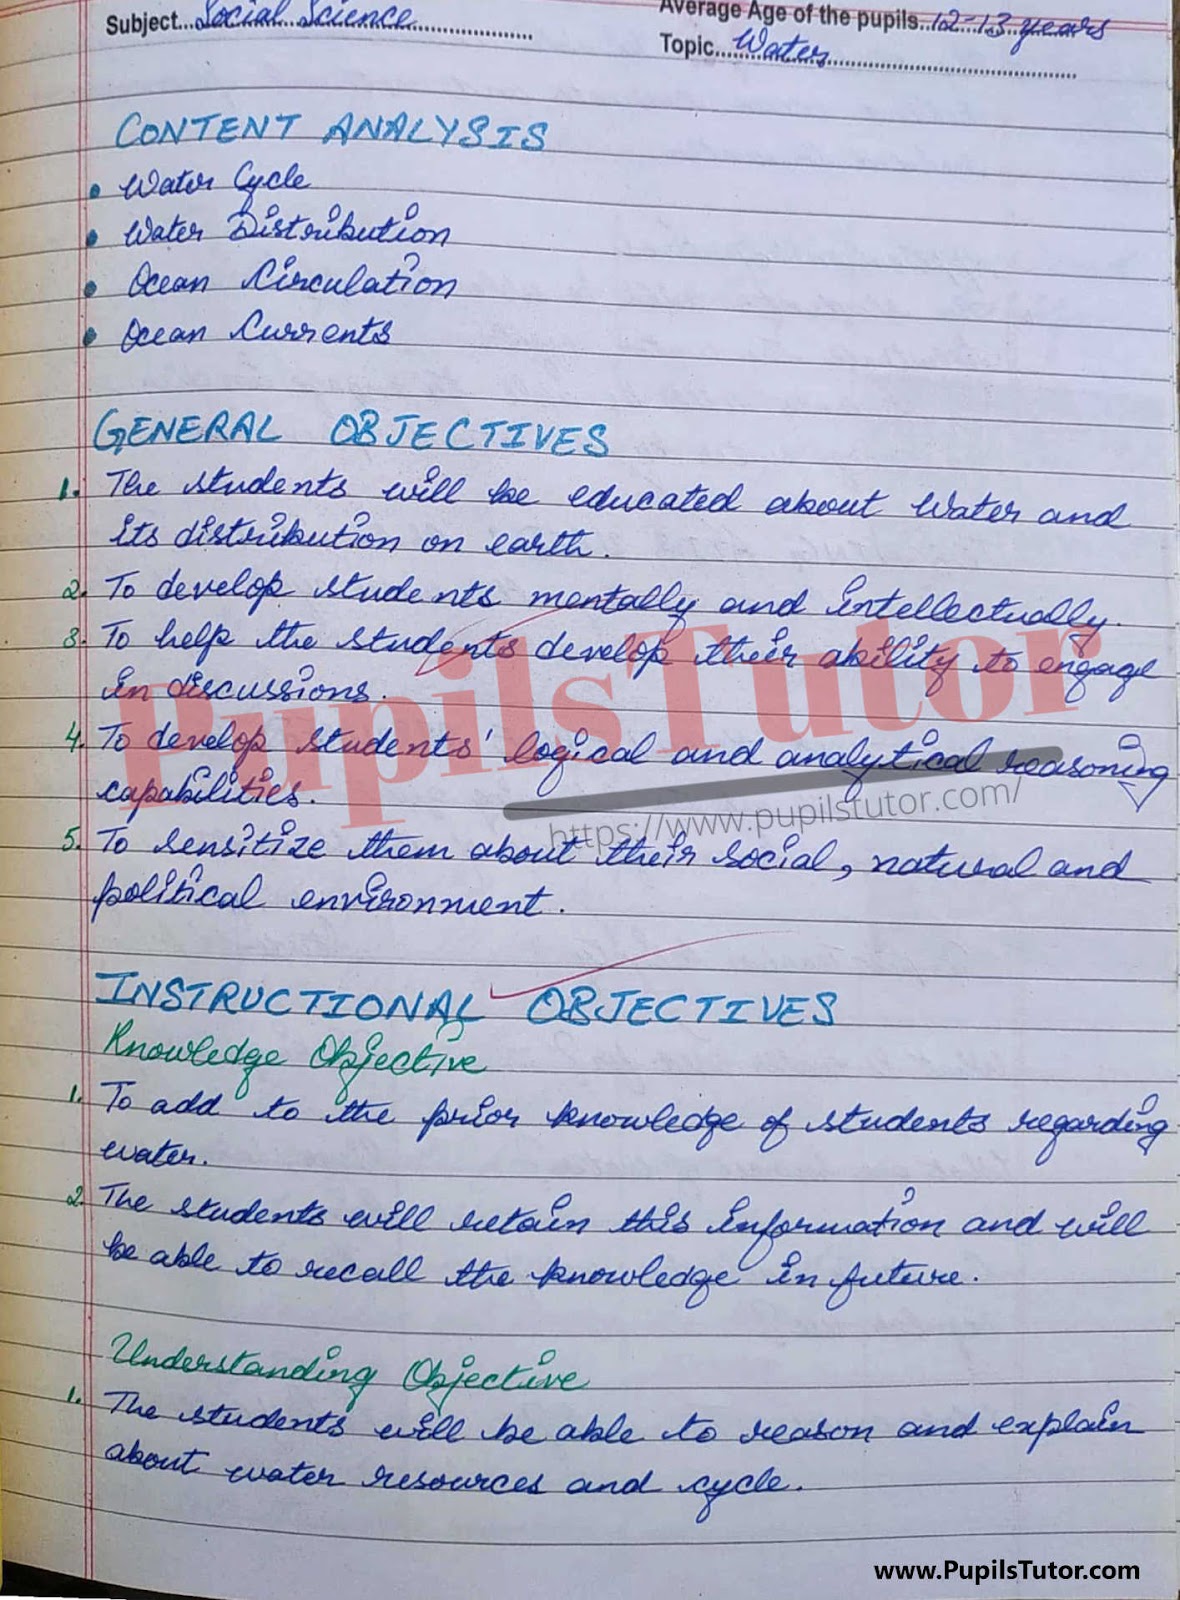 Subject...Social Science...
Average Age of the pupils..12-13 years
Topic....Water....
CONTENT ANALYSIS
• Water Cycle
• Water Distribution
• Ocean Circulation
• Ocean Currents
GENERAL OBJECTIVES
1. The students will be educated about Water and
its distribution on earth.
2. To develop students mentally and intellectually.
3. To help the students develop their ability to engage
in discussions.
PupilsTutor
4. To develop students' logical and analytical reasoning
capabilities.
https://www.pupilstutor.com/
5. To sensitize them about their social, natural and
political environment.
INSTRUCTIONAL OBJECTIVES
Knowledge Objective
1. To add to the prior knowledge of students regarding
water.
2. The students will retain this information and will
be able to recall the knowledge in future.
Understanding Objective
1. The students will be able to reason and explain
about water resources and cycle.
www.PupilsTutor.com